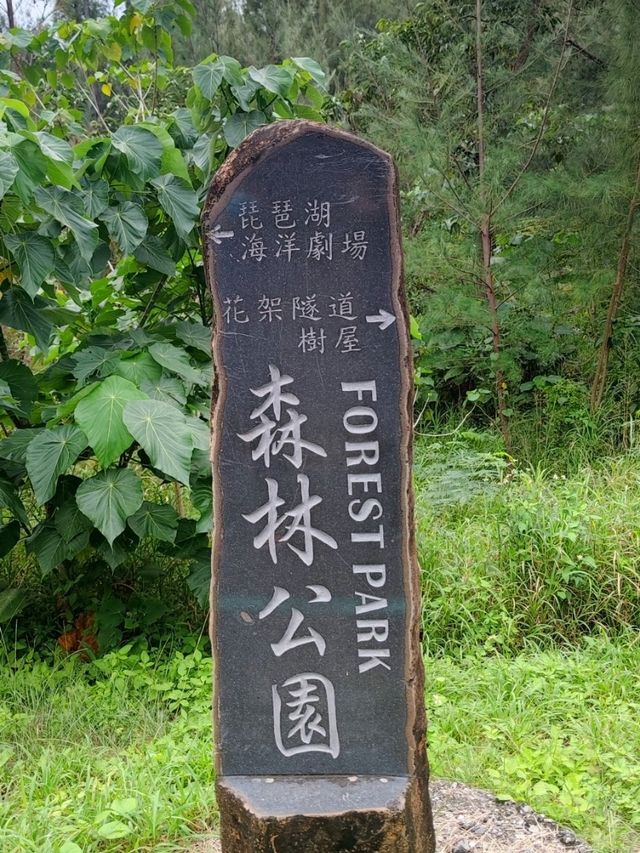 琵琶湖
海洋劇場
花架隧道
樹屋
森林公園
FOREST PARK